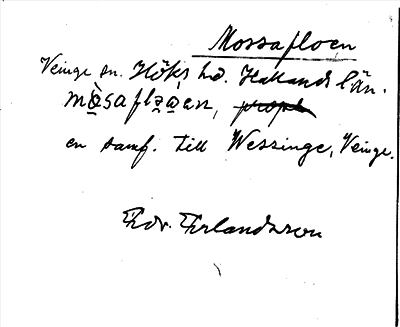 Mossafloen
Veinge sn. Höks hd. Hallands län.
mòsaflɔan,
en samf. till Wessinge, Veinge.
Edv. Erlandsson